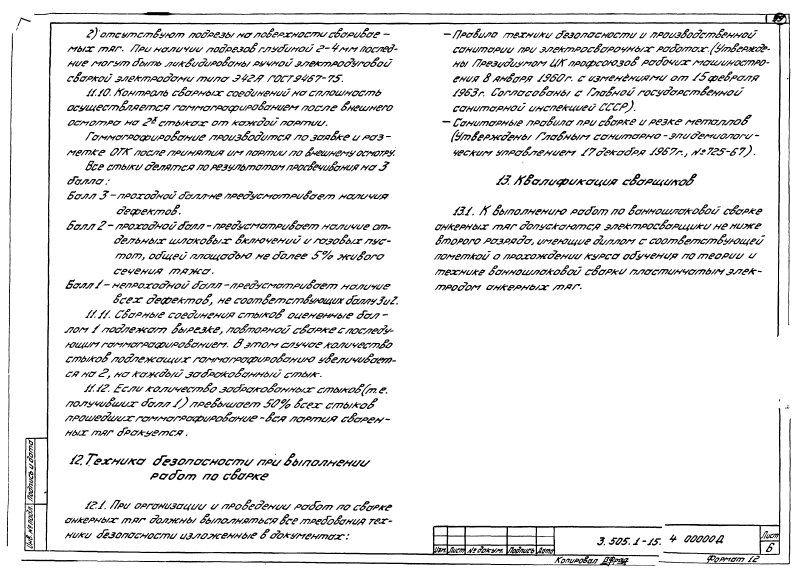 2) отсутствуют подрезы на поверхности сваривае-
мых тяг. При наличии подрезов глубиной 2-4 мм послед-
ние могут быть ликвидированы ручной электродуговой
сваркой электродами типа Э42А ГОСТ 9467-75.
11.10. Контроль сварных соединений на сплошность
осуществляется гаммаграфированием после внешнего
осмотра на 2х стыках от каждой партии.
Гаммаграфирование производится по заявке и раз-
метке ОТК после принятия им партии по внешнему осмотру.
Все стыки делятся по результатам просвечивания на 3
балла:
Балл 3 - проходной балл-не предусматривает наличия
дефектов.
Балл 2 - проходной балл - предусматривает наличие от-
дельных шлаковых включений и газовых пус-
тот, общей площадью не более 5% живого
сечения тяжа.
Балл 1 - непроходной балл - предусматривает наличие
всех дефектов, не соответствующих баллу 3 и 2.
11.11. Сварные соединения стыков оцененные бал-
лом 1 подлежат вырезке, повторной сварке с последу-
ющим гаммаграфированием. В этом случае количество
стыков подлежащих гаммаграфированию увеличивает-
ся на 2, на каждый забракованный стык.
11.12. Если количество забракованных стыков (т.е.
получивших балл 1) превышает 50% всех стыков
прошедших гаммаграфирование - вся партия сварен-
ных тяг бракуется.
12. Техника безопасности при выполнении
работ по сварке
12.1. При организации и проведении работ по сварке
анкерных тяг должны выполняться все требования тех-
ники безопасности изложенные в документах:
- Правила техники безопасности и производственной
санитарии при электросварочных работах. (Утвержде-
ны Президиумом ЦК профсоюзов рабочих машиностро-
ения 8 января 1960г. с изменениями от 15 февраля
1963г. Согласованы с Главной государственной
санитарной инспекцией СССР).
- Санитарные правила при сварке и резке металлов
(Утверждены Главным санитарно-эпидемиологи-
ческим управлением 17 декабря 1967г., № 725-67).
13. Квалификация сварщиков
13.1. К выполнению работ по ванношлаковой сварке
анкерных тяг допускаются электросварщики не ниже
второго разряда, имеющие диплом с соответствующей
пометкой о прохождении курса обучения по теории и
технике ванношлаковой сварки пластинчатым элек-
тродом анкерных тяг.
Инв. № подл. Подпись и дата
Изм. Лист № докум. Подпись Дата
3.505.1-15. 4 00000Д
Лист
6
Копировал
Формат 12